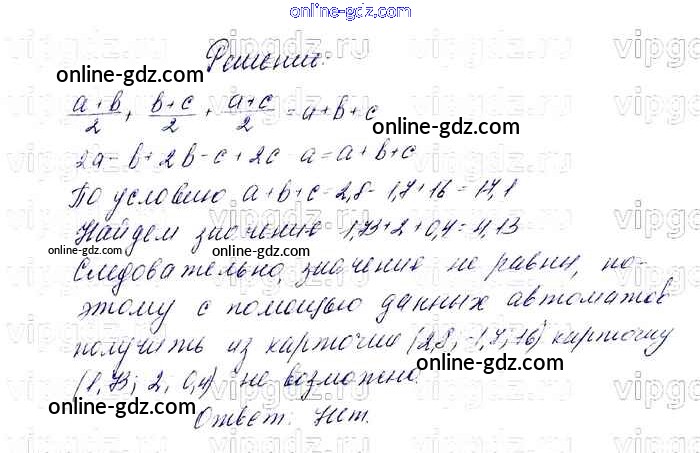 online-gdz.com
Решение:
(a+b)/2 + (b+c)/2 + (a+c)/2 = a+b+c
2a - b + 2b - c + 2c - a = a+b+c
По условию a+b+c = 2,8 - 1,7 + 16 = 17,1
Найдем значение 1,73 + 2 + 0,4 = 4,13
Следовательно, значение не равны, по-
этому с помощью данных автоматов
получить из карточки (2,8; -1,7; 16) карточку
(1,73; 2; 0,4) не возможно.
Ответ: Нет.
online-gdz.com
online-gdz.com
online-gdz.com
online-gdz.com
online-gdz.com
online-gdz.com
online-gdz.com
vipgdz.ru